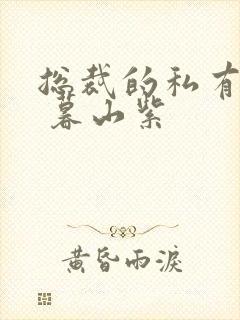 总裁的私有
暮山紫
黄昏雨淚